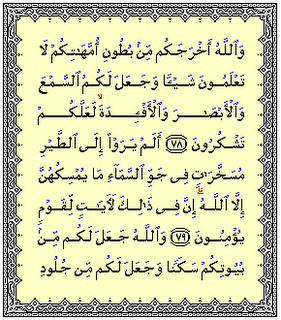 وَٱللَّهُ أَخْرَجَكُم مِّنۢ بُطُونِ أُمَّهَـٰتِكُمْ لَا
تَعْلَمُونَ شَيْـًٔا وَجَعَلَ لَكُمُ ٱلسَّمْعَ
وَٱلْأَبْصَـٰرَ وَٱلْأَفْـِٔدَةَ ۙ لَعَلَّكُمْ
تَشْكُرُونَ ﴿٧٨﴾ أَلَمْ يَرَوْا۟ إِلَى ٱلطَّيْرِ
مُسَخَّرَٰتٍ فِى جَوِّ ٱلسَّمَآءِ مَا يُمْسِكُهُنَّ
إِلَّا ٱللَّهُ ۗ إِنَّ فِى ذَٰلِكَ لَـَٔايَـٰتٍ لِّقَوْمٍ
يُؤْمِنُونَ ﴿٧٩﴾ وَٱللَّهُ جَعَلَ لَكُم مِّنۢ
بُيُوتِكُمْ سَكَنًا وَجَعَلَ لَكُم مِّن جُلُودِ